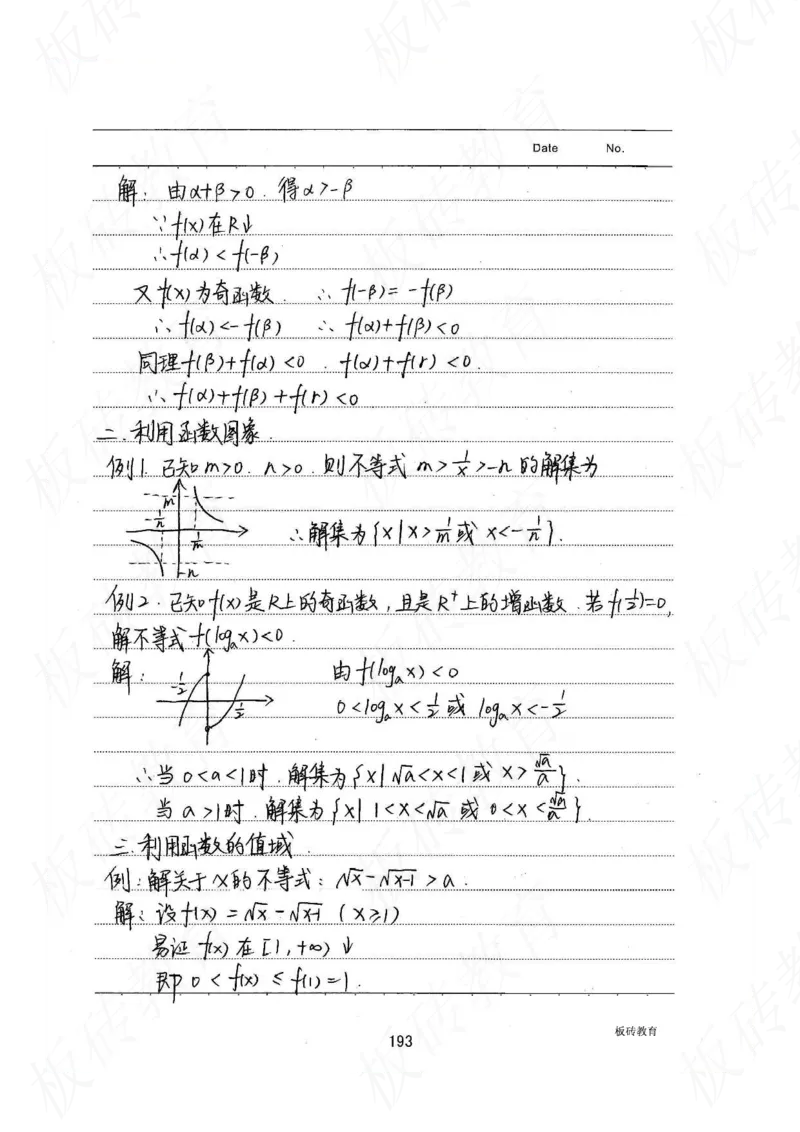 Date No.
解：由α+β>0．得α>-β
∵f(x)在R↓
∴f(α)<f(-β)
又f(x)为奇函数．∴f(-β)=-f(β)
∴f(α)<-f(β) ∴f(α)+f(β)<0
同理f(β)+f(α)<0．f(α)+f(r)<0．
∴f(α)+f(β)+f(r)<0
二．利用函数图象．
例1．已知m>0．n>0．则不等式 m>1/x>-n 的解集为
m
-1/n
1/m
-n
∴解集为{x|x>1/m或 x<-1/n}．
例2．已知f(x)是R上的奇函数，且是R⁺上的增函数．若f(1/2)=0，
解不等式f(logₐx)<0．
解：
-1/2
1/2
由f(logₐx)<0
0<logₐx<1/2或 logₐx<-1/2
∴当0<a<1时．解集为{x|√a<x<1或 x>√a/a}．
当a>1时．解集为{x|1<x<√a或 0<x<√a/a}．
三．利用函数的值域．
例：解关于x的不等式：√x-√x-1>a．
解：设f(x)=√x-√x-1 (x≥1)
易证f(x)在[1,+∞)↓
即0<f(x)≤f(1)=1．
板砖教育
193